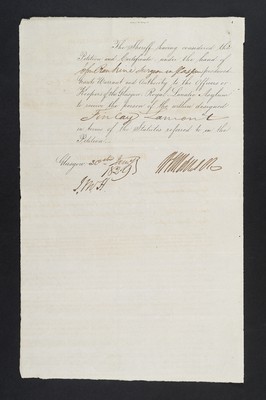 The Sheriff having considered the
Petition and Certificate under the hand of
Surgeon in Glasgow produced
Grants Warrant and Authority to the Officers or
Keepers of the Glasgow Royal Lunatic Asylum
to receive the person of the within designed
Finlay Lamont
in terms of the Statutes referred to in the
Petition.
Glasgow